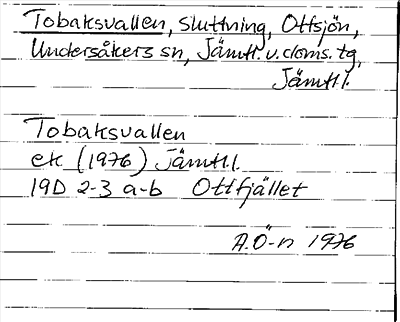 Tobaksvallen, sluttning, Ottsjön,
Undersåkers sn, Jämtl. v. doms. tg,
Jämtl l.
Tobaksvallen
ek (1976) Jämtl l.
19D 2-3 a-b Ottfjället
A.Ö-n 1976